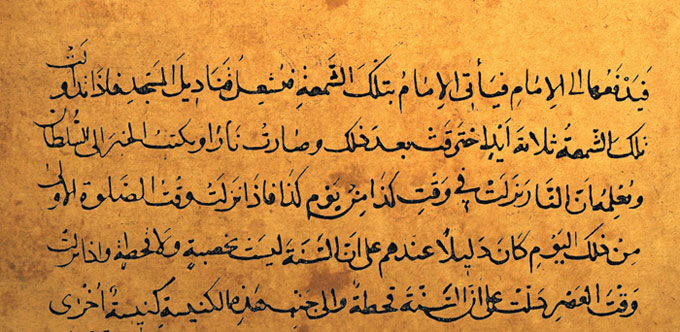 فَيَدْفَعُها الى الإِمَامِ فَيَأتى الإِمَامُ بتلكَ الشَّمعَةِ فتشعلُ قنَاديلَ المَسجد فاذا تداولَتْ
تلكَ الشَّمعةُ ثلاثة أيدٍ احترقَتْ بعدَ ذلك وصارَتْ نارًا ويكتب الخبر الى السُّلطان
ويُعْلمُه انّ النّارَ نزلَتْ في وَقْتِ كذَا مِنْ يَوْمِ كذَا فاذَا نَزلَتْ وَقْتَ الصَّلوةِ الأولى
مِنْ ذلكَ اليَوْمِ كانَ دَليلًا عندهم على انّ السَّنَةَ ليسَتْ بخصبةٍ ولا قحطةٍ واذا نزلت
وقتَ العَصْرِ دَلّتْ على انّ السَّنَةَ قحطةٌ والى جنبِ هذه الكنيسةِ كنيسةٌ اُخْرَى